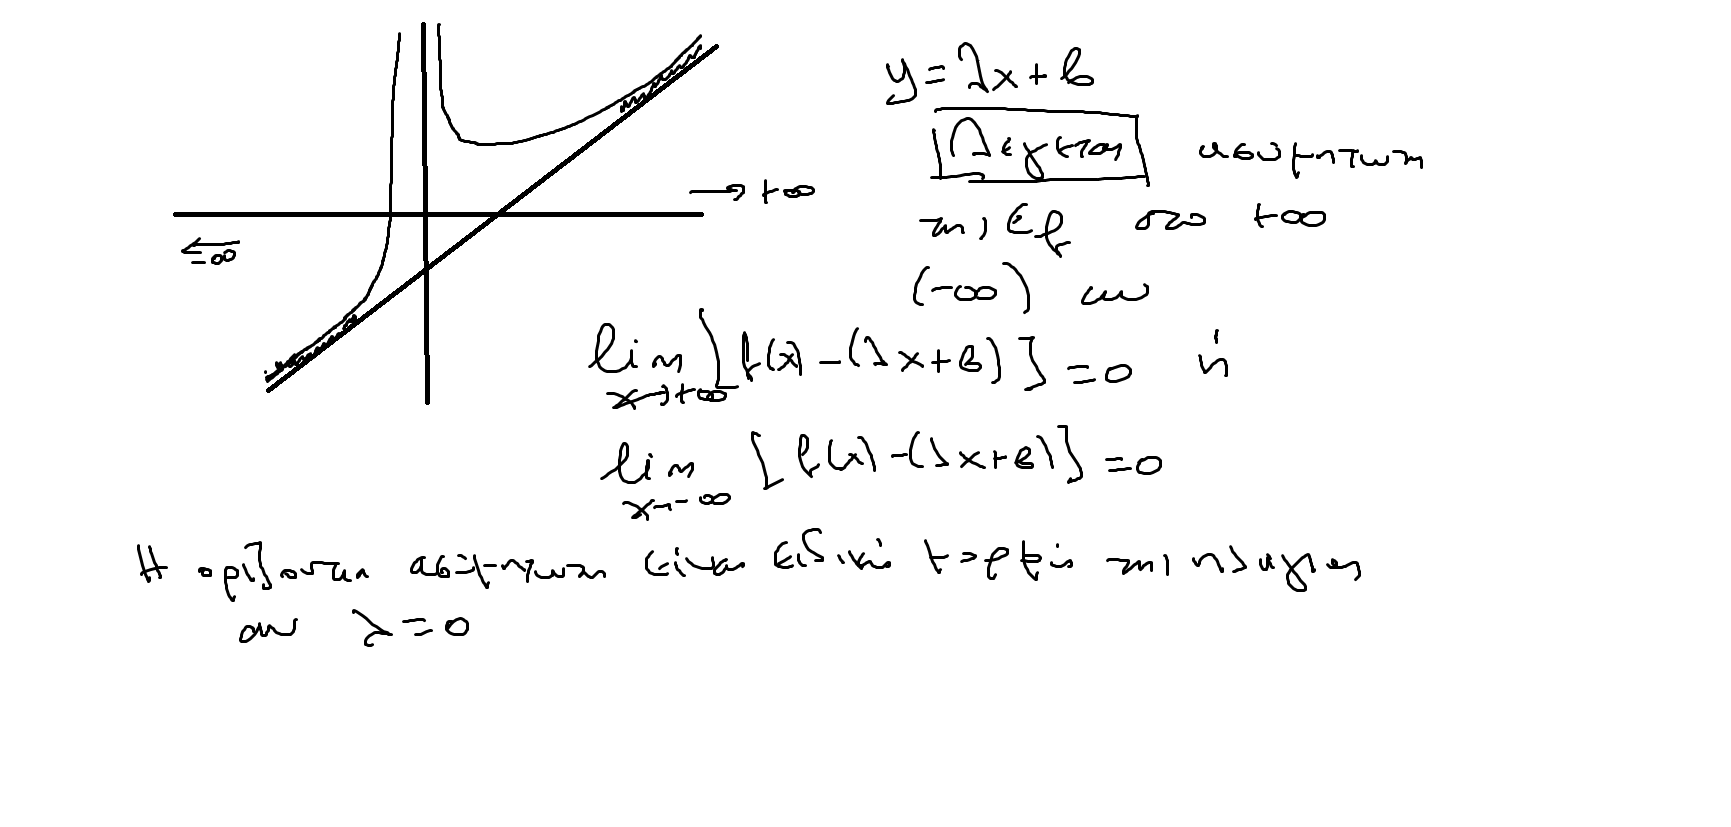 y = λx + β
→ +∞
Λέγεται ασύμπτωτη
←
-∞
της Cf στο +∞
(-∞) αν
lim x→+∞ [f(x) - (λx+β)] = 0 ή
lim x→-∞ [f(x) - (λx+β)] = 0
Η οριζόντια ασύμπτωτη είναι ειδική μορφή της πλάγιας
αν λ = 0